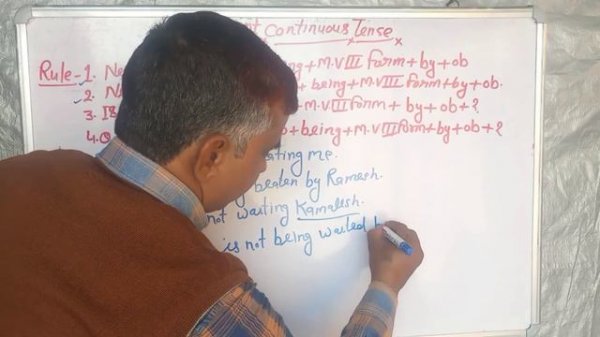 Continuous Tense
Rule-1. Ne ing+M.VIII form+by+ob
2. N + being+M.VIII form+by+ob.
3. Is M.VIII form+ by+ob+?
4. O + being+M.VIII form+by+ob+?
ating me.
beaten by Ramesh.
not waiting Kamalesh.
is not being waited b